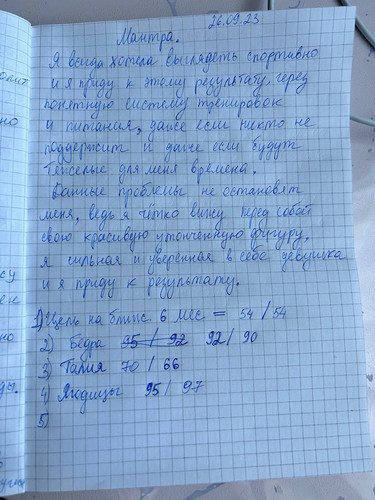 26.09.23
Мантра.
Я всегда хотела выглядеть спортивно
и я приду к этому результату через
понятную систему тренировок
и питания, даже если никто не
поддержит и даже если будут
тяжёлые для меня времена.
Данные проблемы не остановят
меня, ведь я чётко вижу перед собой
свою красивую утонченную фигуру,
я сильная и уверенная в себе девушка
и я приду к результату.
1) Цель на ближ 6 мес = 54 / 54
2) Бедра 95 / 92 92 / 90
3) Талия 70 / 66
4) Ягодицы 95 / 97
5)